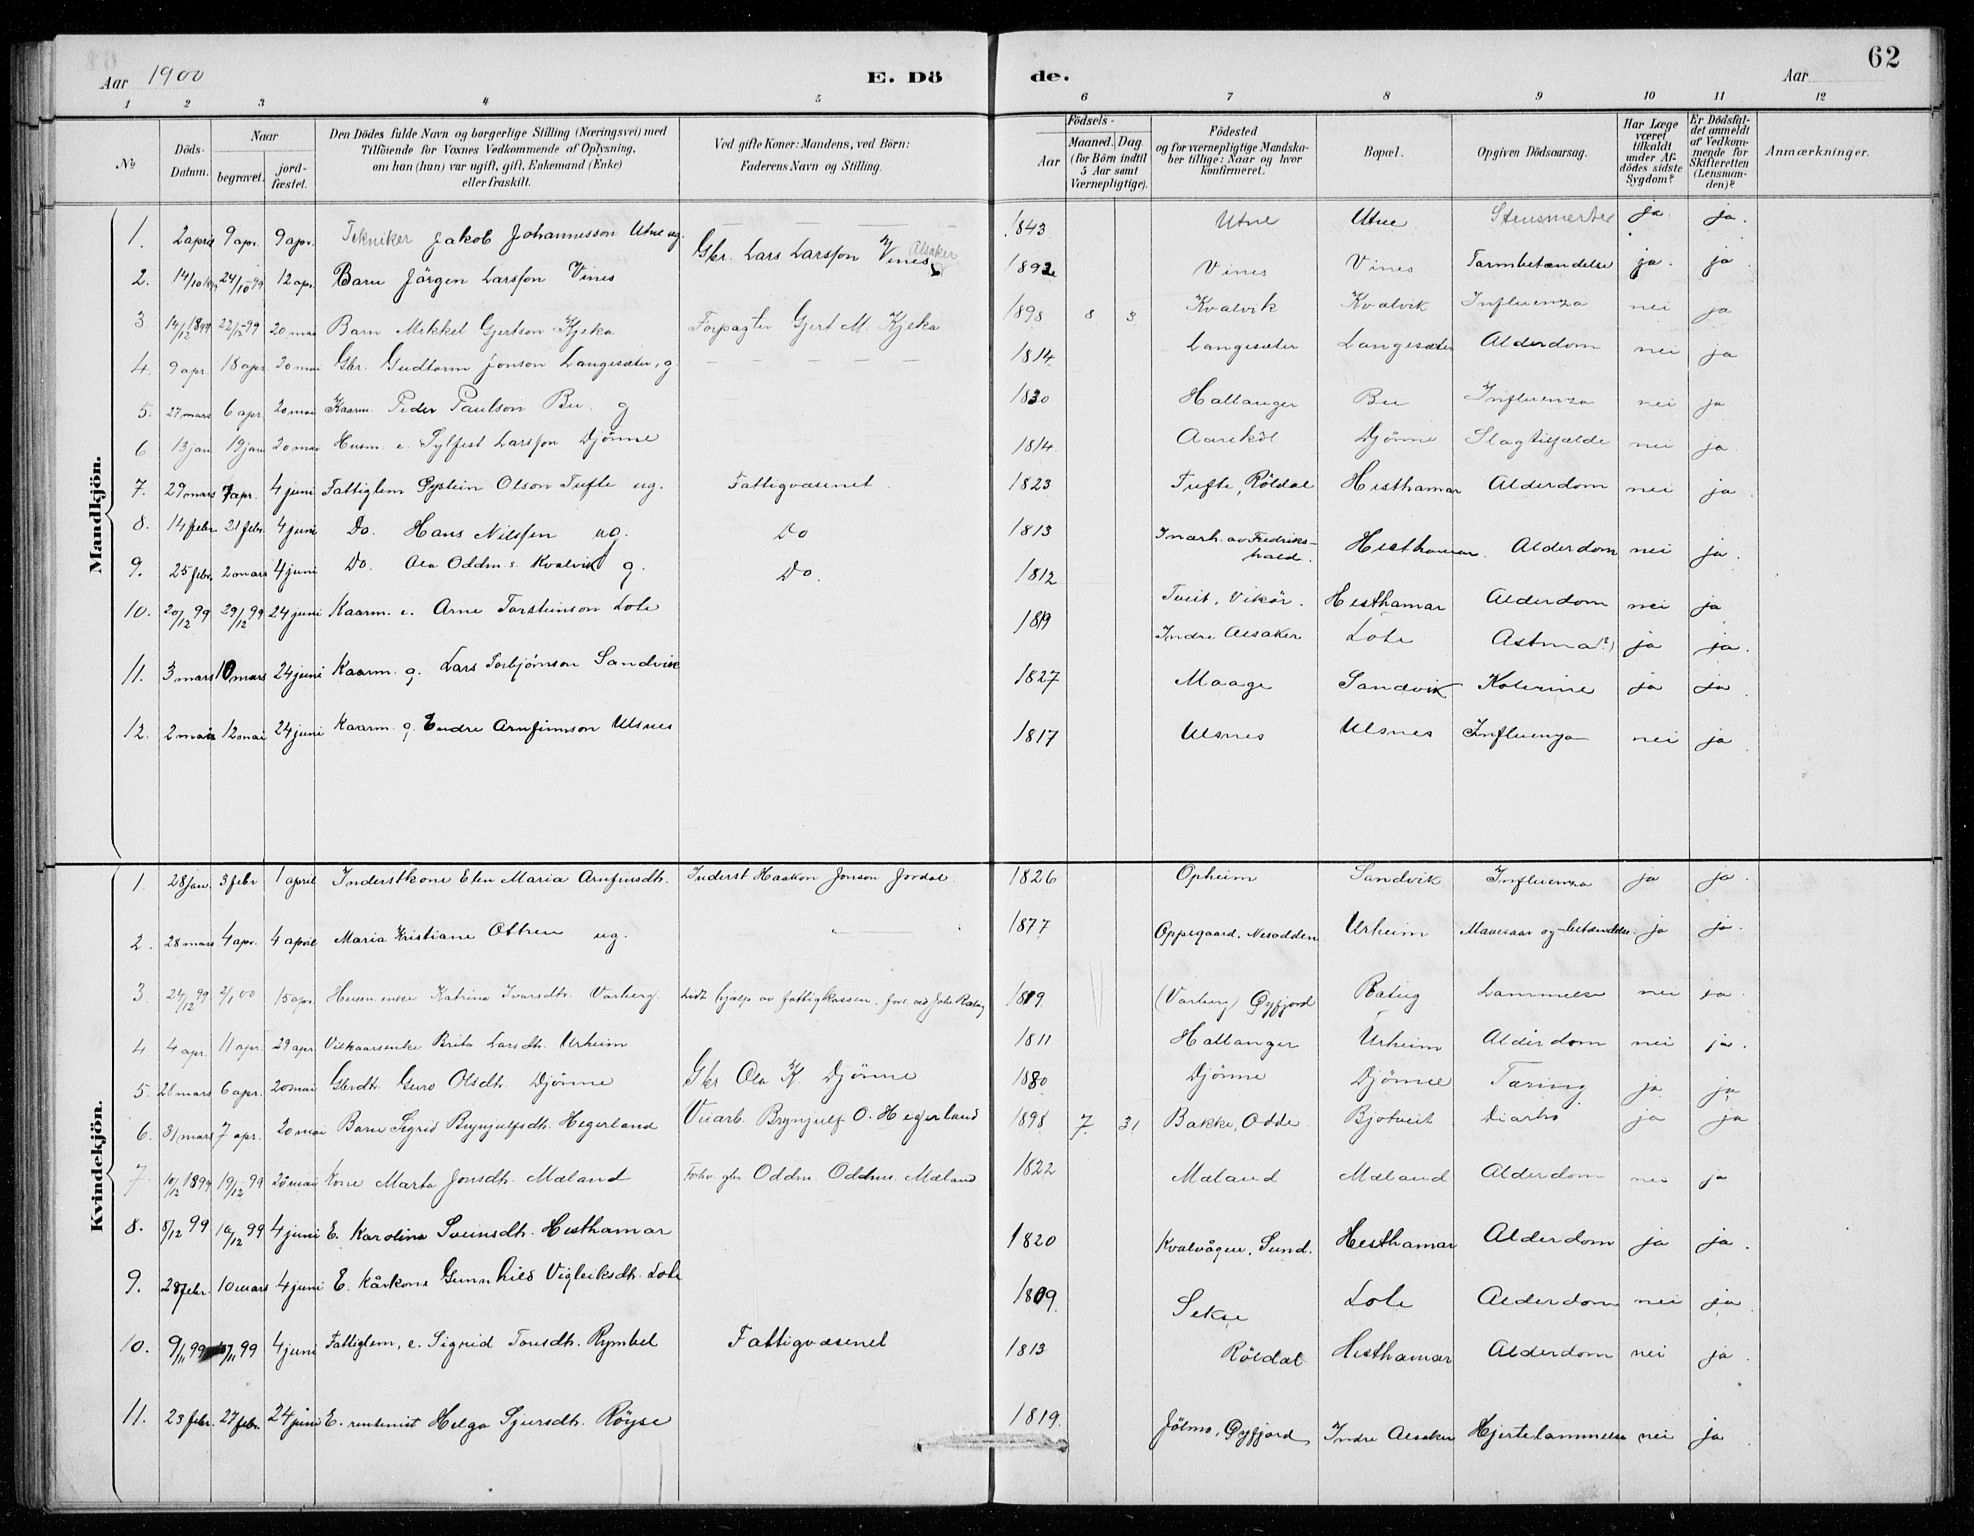 Aar 1900 E. Dö de. Aar 62
1 2 3 4 5 6 7 8 9 10 11 12
No. Döds-Datum. Naar begravet. jord-fæstet. Den Dödes fulde Navn og borgerlige Stilling (Næringsvei) med Tilföiende for Voxnes Vedkommende af Oplysning, om han (hun) var ugift, gift, Enkemand (Enke) eller fraskilt. Ved gifte Koner: Mandens, ved Börn: Faderens Navn og Stilling. Aar Födsels- Maaned. Dag. (for Börn indtil 5 Aar samt Værnepligtige). Födested og for værnepligtige Mandskaber tillige: Naar og hvor konfirmeret. Bopæl. Opgiven Dödsaarsag. Har Læge været tilkaldt under Afdödes sidste Sygdom? Er Dödsfaldet anmeldt af Vedkommende for Skifteretten (Lensmanden)? Anmærkninger.
Mandkjön.
1. 2 april 9 apr. 9 apr. Tekniker Jakob Johannesson Utne ug. — 1843 Utne Utne Stensmerter ja. ja.
2. 14/10 24/10 99 12 apr. Barn Jörgen Larsson Vines Gbr. Lars Larsson Vines Alsaker 1892 Vines Vines Tarmbetændelse ja. ja
3 14/12 1899 22/12 99 20 mai Barn Mikkel Gjertson Kjeka Forpagter Gjert M. Kjeka 1898 8 3 Kvalvik Kvalvik Influenza nei ja
4. 9 apr. 18 apr. 20 mai Gbr. Gudtorm Jonson Langesæter, g. — — — — 1814 Langesæter Langesæter Alderdom nei ja
5. 27 mars 6 apr. 20 mai Kaarm. Peder Paulson Bu, g 1830 Hallanger Bu Influenza nei ja
6 13 jan 19 jan 20 mai Husm. e. Sylfest Larsson Djönne 1814. Djönne Slagtilfælde nei ja.
7. 29 mars 7 apr. 4 juni Fattiglem Øystein Olson Tufte ug. Fattigvæsenet. 1823 Tufte, Röldal Hesthamar Alderdom nei ja.
8. 14 febr. 21 febr. 4 juni Do. Hans Nilssen ug. Do 1813 Inarh. av Fredriks-hald. Hesthamar. Alderdom nei ja.
9. 25 febr. 2 mars 4 juni Do. Ola Oddm.s. Kvalvik g. Do. 1812 Tveit, Vikör. Hesthamar Alderdom nei ja
10. 20/12 99 29/12 99 24 juni Kaarm. e. Arne Torsteinson Lote 1819 Indre Alsaker Lote Astma(?) ja ja.
11. 3 mars 10 mars 24 juni Kaarm. g. Lars Torbjörnson Sandvik 1827 Maage Sandvik Kolerine ja ja
12. 2 mai 12 mai 24 juni Kaarm. g. Endre Arnfinnson Ulsnes 1817 Ulsnes Ulsnes Influenza nei ja
Kvindekjön.
1. 28 jan. 3 febr 1 april Inderstkone Elen Maria Arnfinsdh. Inderst Haakon Jonson Jordal. 1826 Opheim Sandvik Influenza ja ja.
2. 28 mars 4 apr. 4 april Maria Kristiane Ottsen ug. 1877 Oppegaard, Nesodden Urheim Mavesaar og -betændelse. ja ja.
3. 24/12 99 2/1 00 15 apr. Husm. enke Katrina Ivarsdh. Varberg. Lidt hjælp av fattigkassen. 1819. (Varberg) Øyfjord Lammelse nei ja.
4 4 apr. 11 apr. 29 apr. Vilkaarsenke Brita Larsdh. Urheim 1811 Hallanger Urheim Alderdom nei ja.
5. 26 mars 6 apr. 20 mai Gbrdh. Guro Olsdh. Djönne Gbr Ola K. Djönne 1880 Djönne Djönne Tæring ja ja
6. 31 mars 7 apr. 20 mai Barn Sigrid Brynjulfsdh. Hegerland Veiarb. Brynjulf O. Hegerland 1898 7. 31 Bakke, Odde. Bjotveit Diarhö ja ja
7. 10/12 1899 19/12 99 20 mai Kone Marta Jonsdh. Mæland Forhv. gbr Oddm. Oddms. Mæland 1822 Mæland Mæland Alderdom nei ja
8. 8/12 99 16/12 99 4 juni E. Karolina Sveinsdh. Hesthamar 1820 Kvalvågen, Sund. Hesthamar Alderdom ja ja.
9. 28 febr. 10 mars 4 juni E. Kårkone Gunnhild Vigleiksdh. Lote 1809. Sekse Lote Alderdom nei ja.
10. 9/11 99 /11 99 4 juni Fattiglem, e. Sigrid Toresdh. Rymbel Fattigvæsenet 1813 Röldal Hesthamar Alderdom nei ja.
11. 23 febr. 27 febr. 24 juni E. rentenist Helga Sjursdh. Röyse 1819. Jölmo, Øyfjord Indre Alsaker Hjertelammelse nei ja